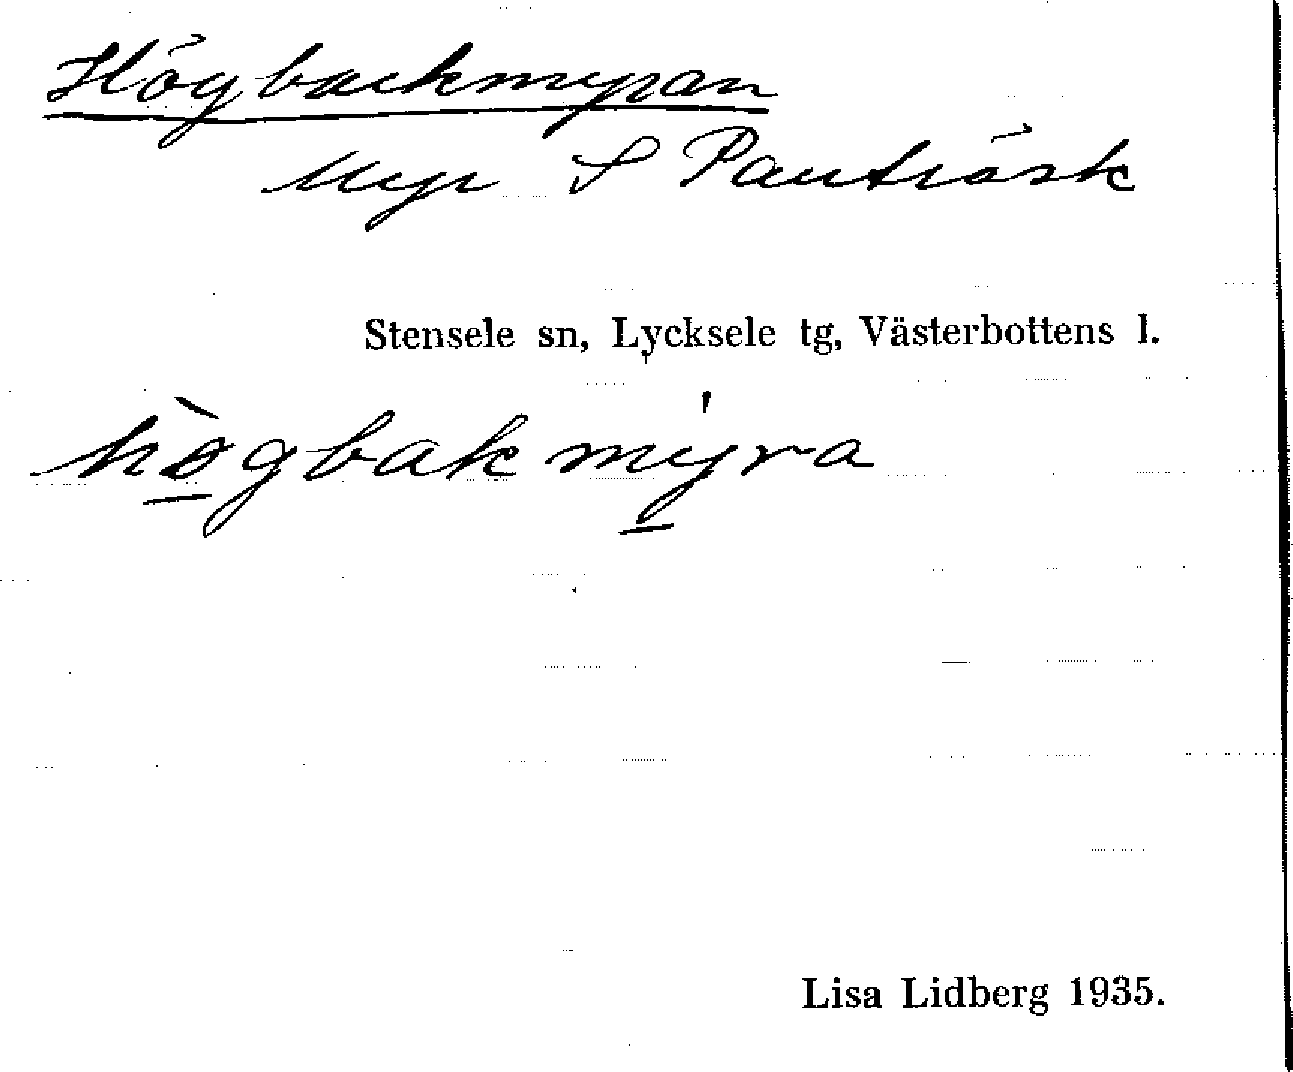 Högbackmyran
Myr S Pauträsk
Stensele sn, Lycksele tg, Västerbottens l.
hø̀gbakmy̍ra
Lisa Lidberg 1935.